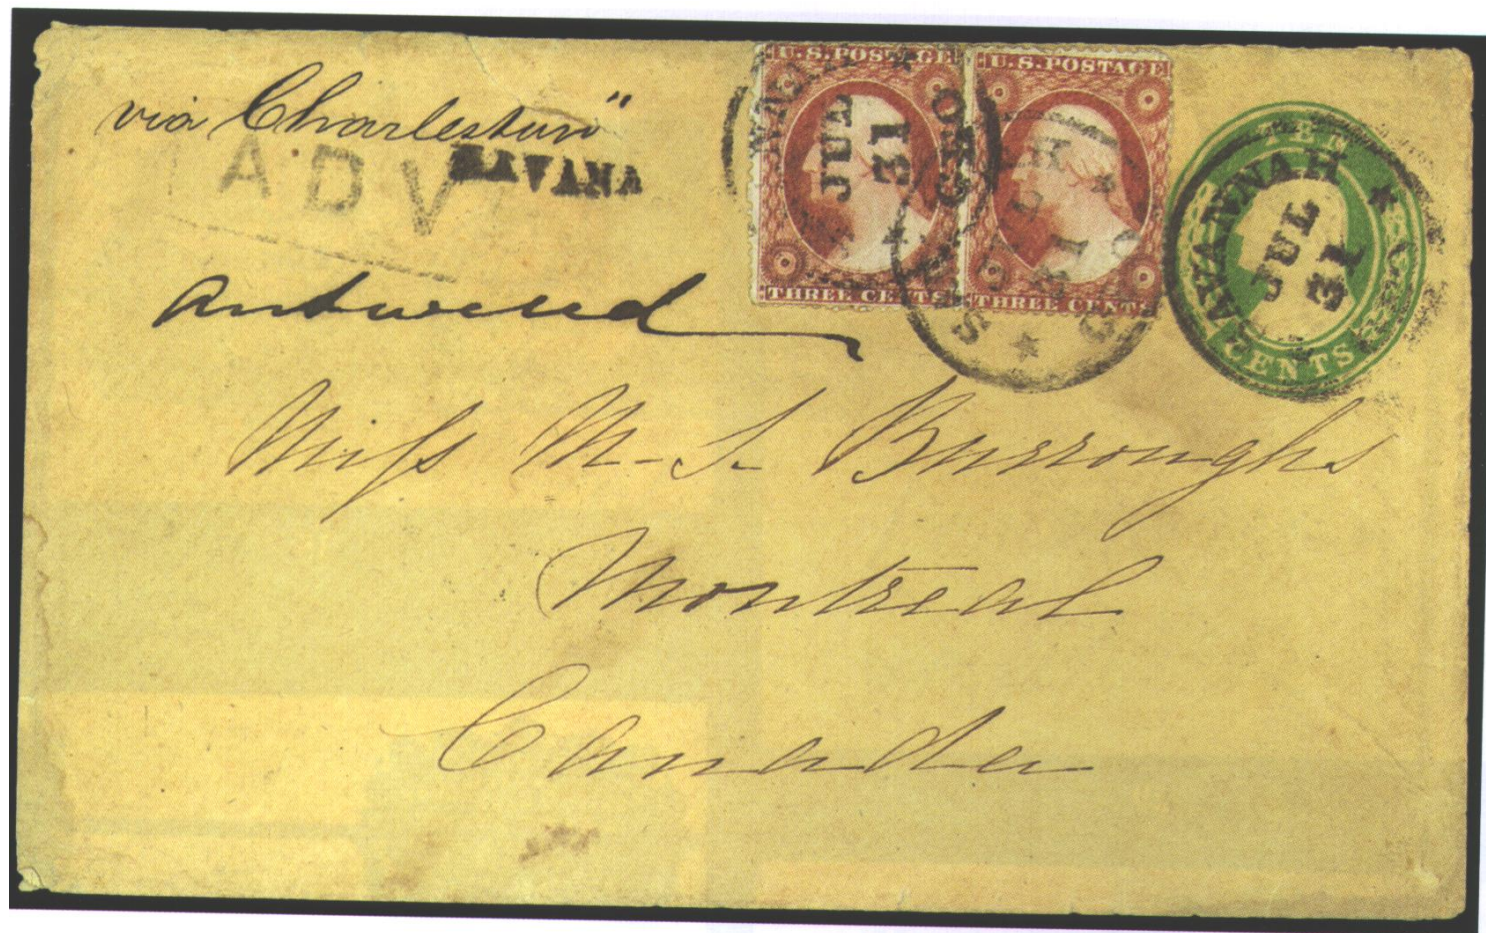 via Charleston"
ADV
HAVANA
Answered
U.S. POSTAGE
THREE CENTS
U.S. POSTAGE
THREE CENTS
JUL
31
SAVANNAH
JUL
31
CENTS
Miss M. S. Burroughs
Montreal
Canada